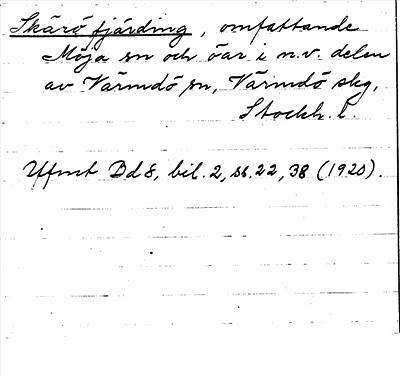 Skärö fjärding, omfattande
Möja sn och öar i n.v. delen
av Värmdö sn, Värmdö skg,
Stockh. l.
Uffmt Bd 8, bil. 2, ss. 22, 38 (1920).